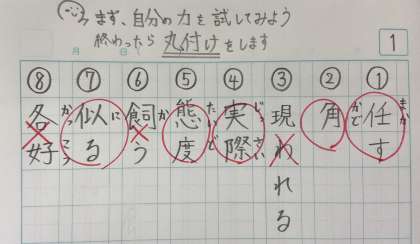 まず、自分の力を試してみよう
終わったら丸付けをします
1
月 日
① 任す まか
② 角 かど
③ 現われる
④ 実際 じっさい
⑤ 態度 たいど
⑥ 飼う か
⑦ 似る に
⑧ 各好 かっこう